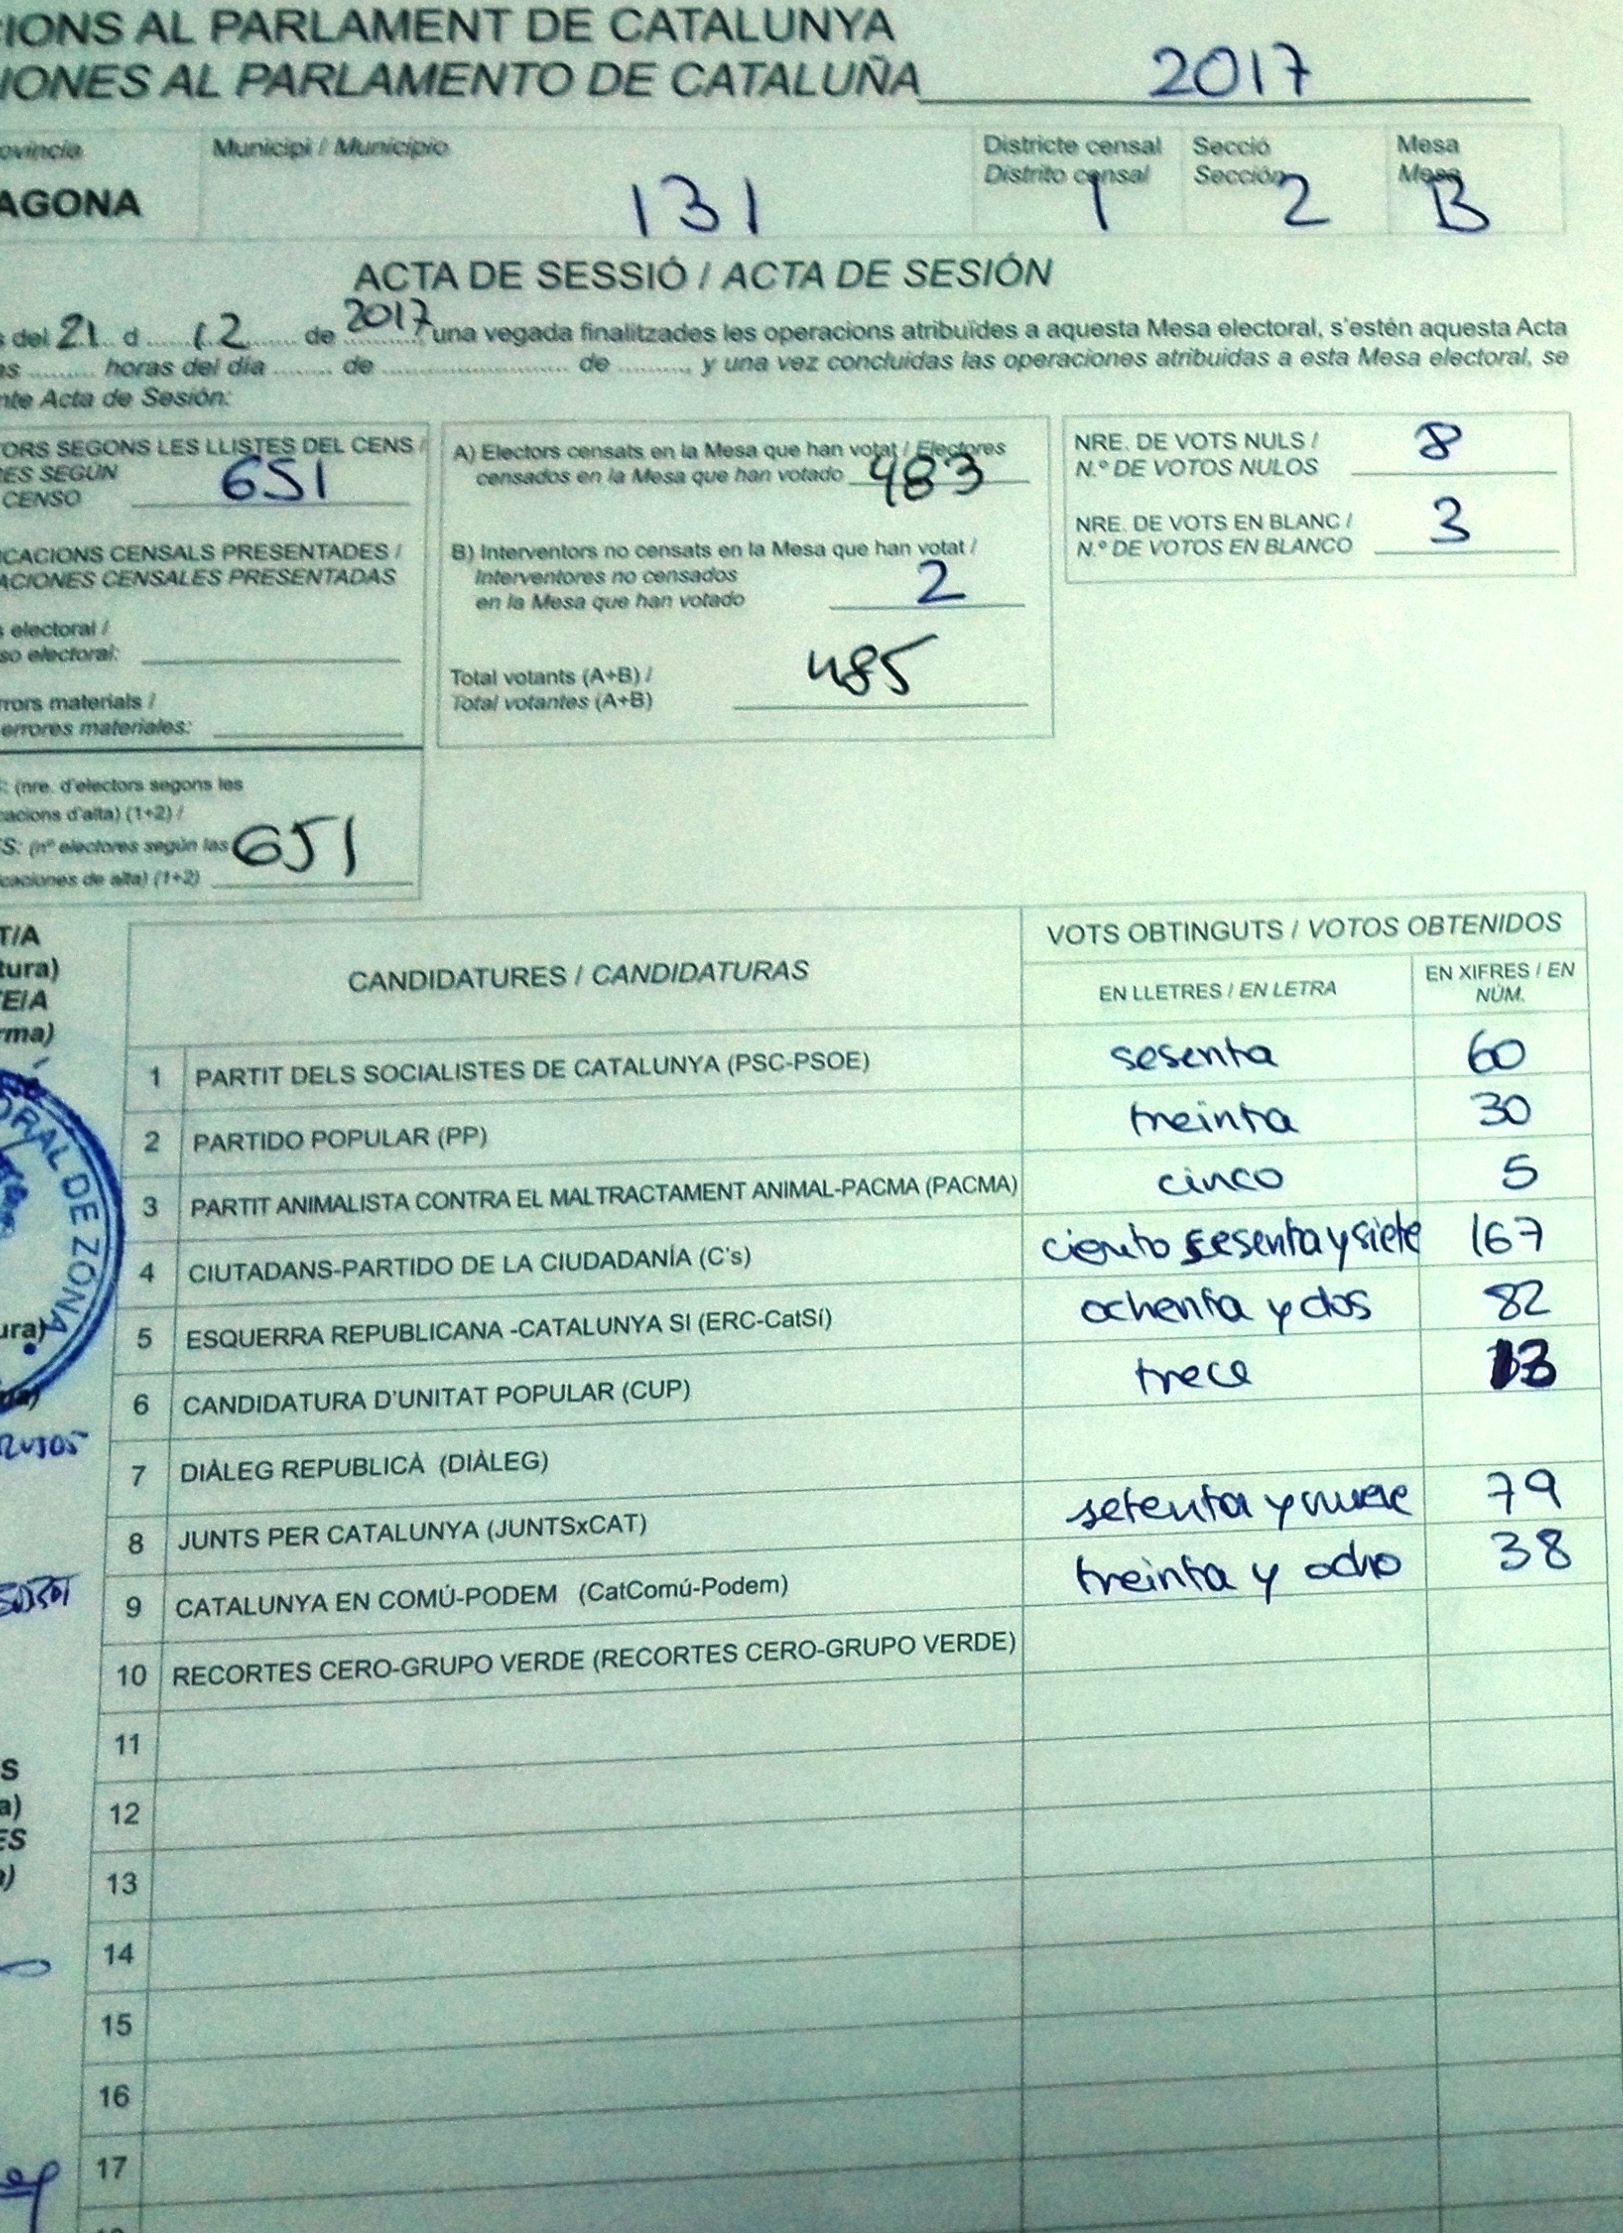 IONS AL PARLAMENT DE CATALUNYA
IONES AL PARLAMENTO DE CATALUÑA 2017
ovincia Municipi / Municipio Districte censal Secció Mesa
Distrito censal Sección Mesa
AGONA 131 1 2 B
ACTA DE SESSIÓ / ACTA DE SESIÓN
s del 21 d 12 de 2017, una vegada finalitzades les operacions atribuïdes a aquesta Mesa electoral, s'estén aquesta Acta
as ......... horas del día ........ de ........................ de .........., y una vez concluidas las operaciones atribuidas a esta Mesa electoral, se
nte Acta de Sesión:
ORS SEGONS LES LLISTES DEL CENS /
ES SEGÚN
CENSO 651
CACIONS CENSALS PRESENTADES /
ACIONES CENSALES PRESENTADAS
s electoral /
so electoral:
rrors materials /
errores materiales:
S: (nre. d'electors segons les
cacions d'alta) (1+2) /
S: (nº electores según las
caciones de alta) (1+2) 651
A) Electors censats en la Mesa que han votat / Electores
censados en la Mesa que han votado 483
B) Interventors no censats en la Mesa que han votat /
Interventores no censados
en la Mesa que han votado 2
Total votants (A+B) /
Total votantes (A+B) 485
NRE. DE VOTS NULS /
N.º DE VOTOS NULOS 8
NRE. DE VOTS EN BLANC /
N.º DE VOTOS EN BLANCO 3
T/A
tura)
TE/A
rma)
ORAL DE ZONA
ura)
S
a)
ES
)
CANDIDATURES / CANDIDATURAS VOTS OBTINGUTS / VOTOS OBTENIDOS
EN LLETRES / EN LETRA EN XIFRES / EN
NÚM.
1 PARTIT DELS SOCIALISTES DE CATALUNYA (PSC-PSOE) sesenta 60
2 PARTIDO POPULAR (PP) treinta 30
3 PARTIT ANIMALISTA CONTRA EL MALTRACTAMENT ANIMAL-PACMA (PACMA) cinco 5
4 CIUTADANS-PARTIDO DE LA CIUDADANÍA (C's) ciento sesenta y siete 167
5 ESQUERRA REPUBLICANA -CATALUNYA SI (ERC-CatSí) ochenta y dos 82
6 CANDIDATURA D'UNITAT POPULAR (CUP) trece 13
7 DIÀLEG REPUBLICÀ (DIÀLEG)
8 JUNTS PER CATALUNYA (JUNTSxCAT) setenta y nueve 79
9 CATALUNYA EN COMÚ-PODEM (CatComú-Podem) treinta y ocho 38
10 RECORTES CERO-GRUPO VERDE (RECORTES CERO-GRUPO VERDE)
11
12
13
14
15
16
17